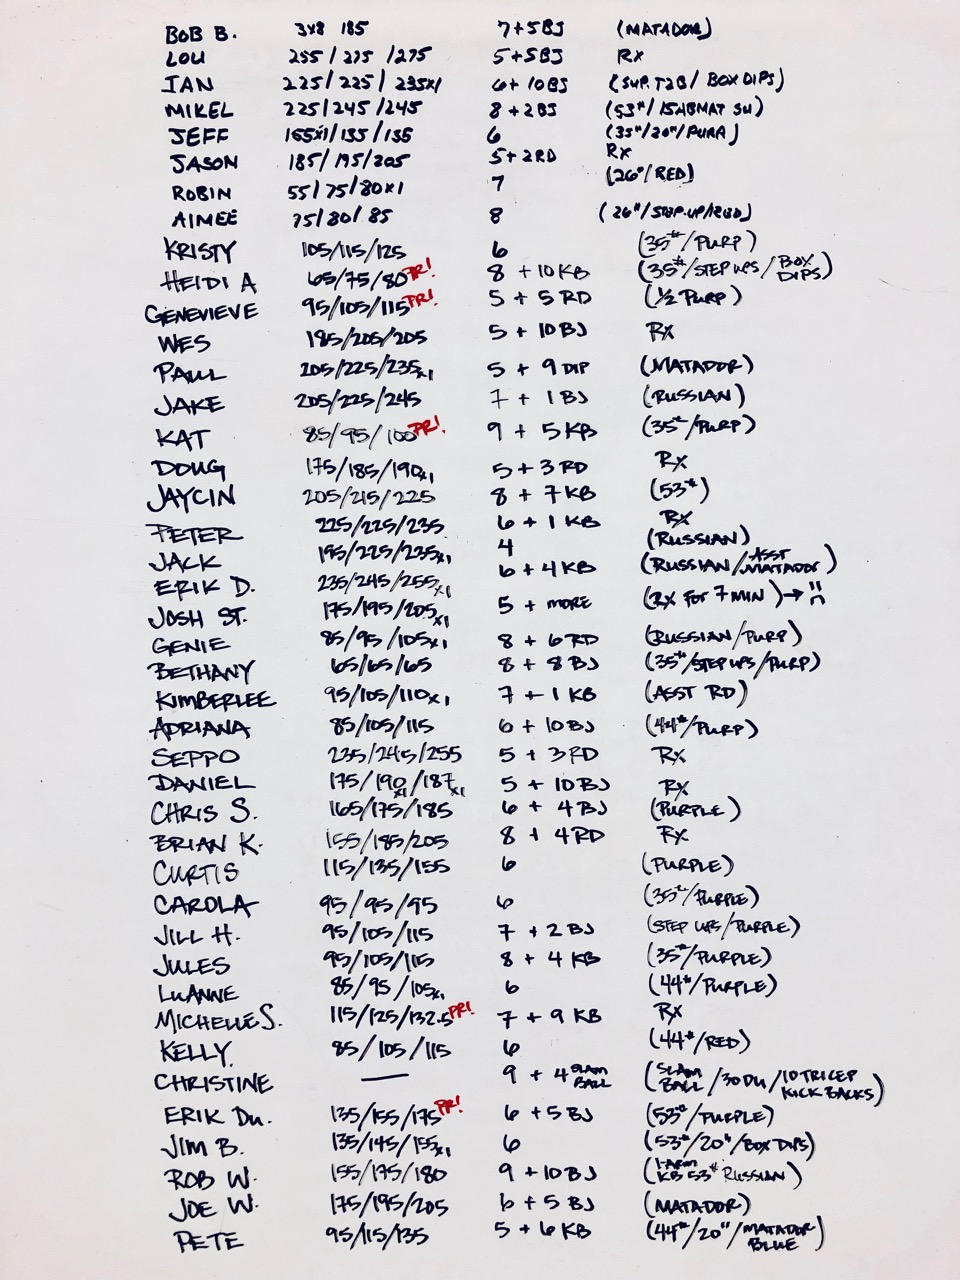 BOB B. 3x8 185 7+5BJ (MATADOR)
LOU 255/275/275 5+5BJ RX
IAN 225/225/235x1 6+10BJ (SUP. T2B/BOX DIPS)
MIKEL 225/245/245 8+2BJ (53#/15ABMAT SU)
JEFF 155x1/135/135 6 (35#/20"/PURP)
JASON 185/195/205 5+2RD RX
ROBIN 55/75/80x1 7 (26#/RED)
AIMEE 75/80/85 8 (26#/STEP-UP/RED)
KRISTY 105/115/125 6 (35#/PURP)
HEIDI A 65/75/80 PR! 8 + 10 KB (35#/STEP UPS/BOX DIPS)
GENEVIEVE 95/105/115 PR! 5 + 5 RD (1/2 PURP)
WES 185/205/205 5 + 10 BJ RX
PAUL 205/225/235x1 5 + 9 DIP (MATADOR)
JAKE 205/225/245 7 + 1 BJ (RUSSIAN)
KAT 85/95/100 PR! 9 + 5 KB (35#/PURP)
DOUG 175/185/190x1 5 + 3 RD RX
JAYCIN 205/215/225 8 + 7 KB (53#)
PETER 225/225/235 6 + 1 KB RX
JACK 195/225/235x1 4 (RUSSIAN)
ERIK D. 235/245/255x1 6 + 4 KB (RUSSIAN/ASST MATADOR)
JOSH ST. 175/195/205x1 5 + MORE (RX FOR 7 MIN)→
GENIE 85/95/105x1 8 + 6 RD (RUSSIAN/PURP)
BETHANY 65/65/65 8 + 8 BJ (35#/STEP UPS/PURP)
KIMBERLEE 95/105/110x1 7 + 1 KB (ASST RD)
ADRIANA 85/105/115 6 + 10 BJ (44#/PURP)
SEPPO 235/245/255 5 + 3 RD RX
DANIEL 175/190x1/187x1 5 + 10 BJ RX
CHRIS S. 165/175/185 6 + 4 BJ (PURPLE)
BRIAN K. 155/185/205 8 + 4 RD RX
CURTIS 115/135/155 6 (PURPLE)
CAROLA 95/95/95 6 (35#/PURPLE)
JILL H. 95/105/115 7 + 2 BJ (STEP UPS/PURPLE)
JULES 95/105/115 8 + 4 KB (35#/PURPLE)
LUANNE 85/95/105x1 6 (44#/PURPLE)
MICHELLE S. 115/125/132.5 PR! 7 + 9 KB RX
KELLY 85/105/115 6 (44#/RED)
CHRISTINE — 9 + 4 SLAM BALL (SLAM BALL/30 DU/10 TRICEP KICK BACKS)
ERIK DU. 135/155/175 PR! 6 + 5 BJ (53#/PURPLE)
JIM B. 135/145/155x1 6 (53#/20"/BOX DIPS)
ROB W. 155/175/180 9 + 10 BJ (1-ARM KB 53# RUSSIAN)
JOE W. 175/195/205 6 + 5 BJ (MATADOR)
PETE 95/115/135 5 + 6 KB (44#/20"/MATADOR BLUE)